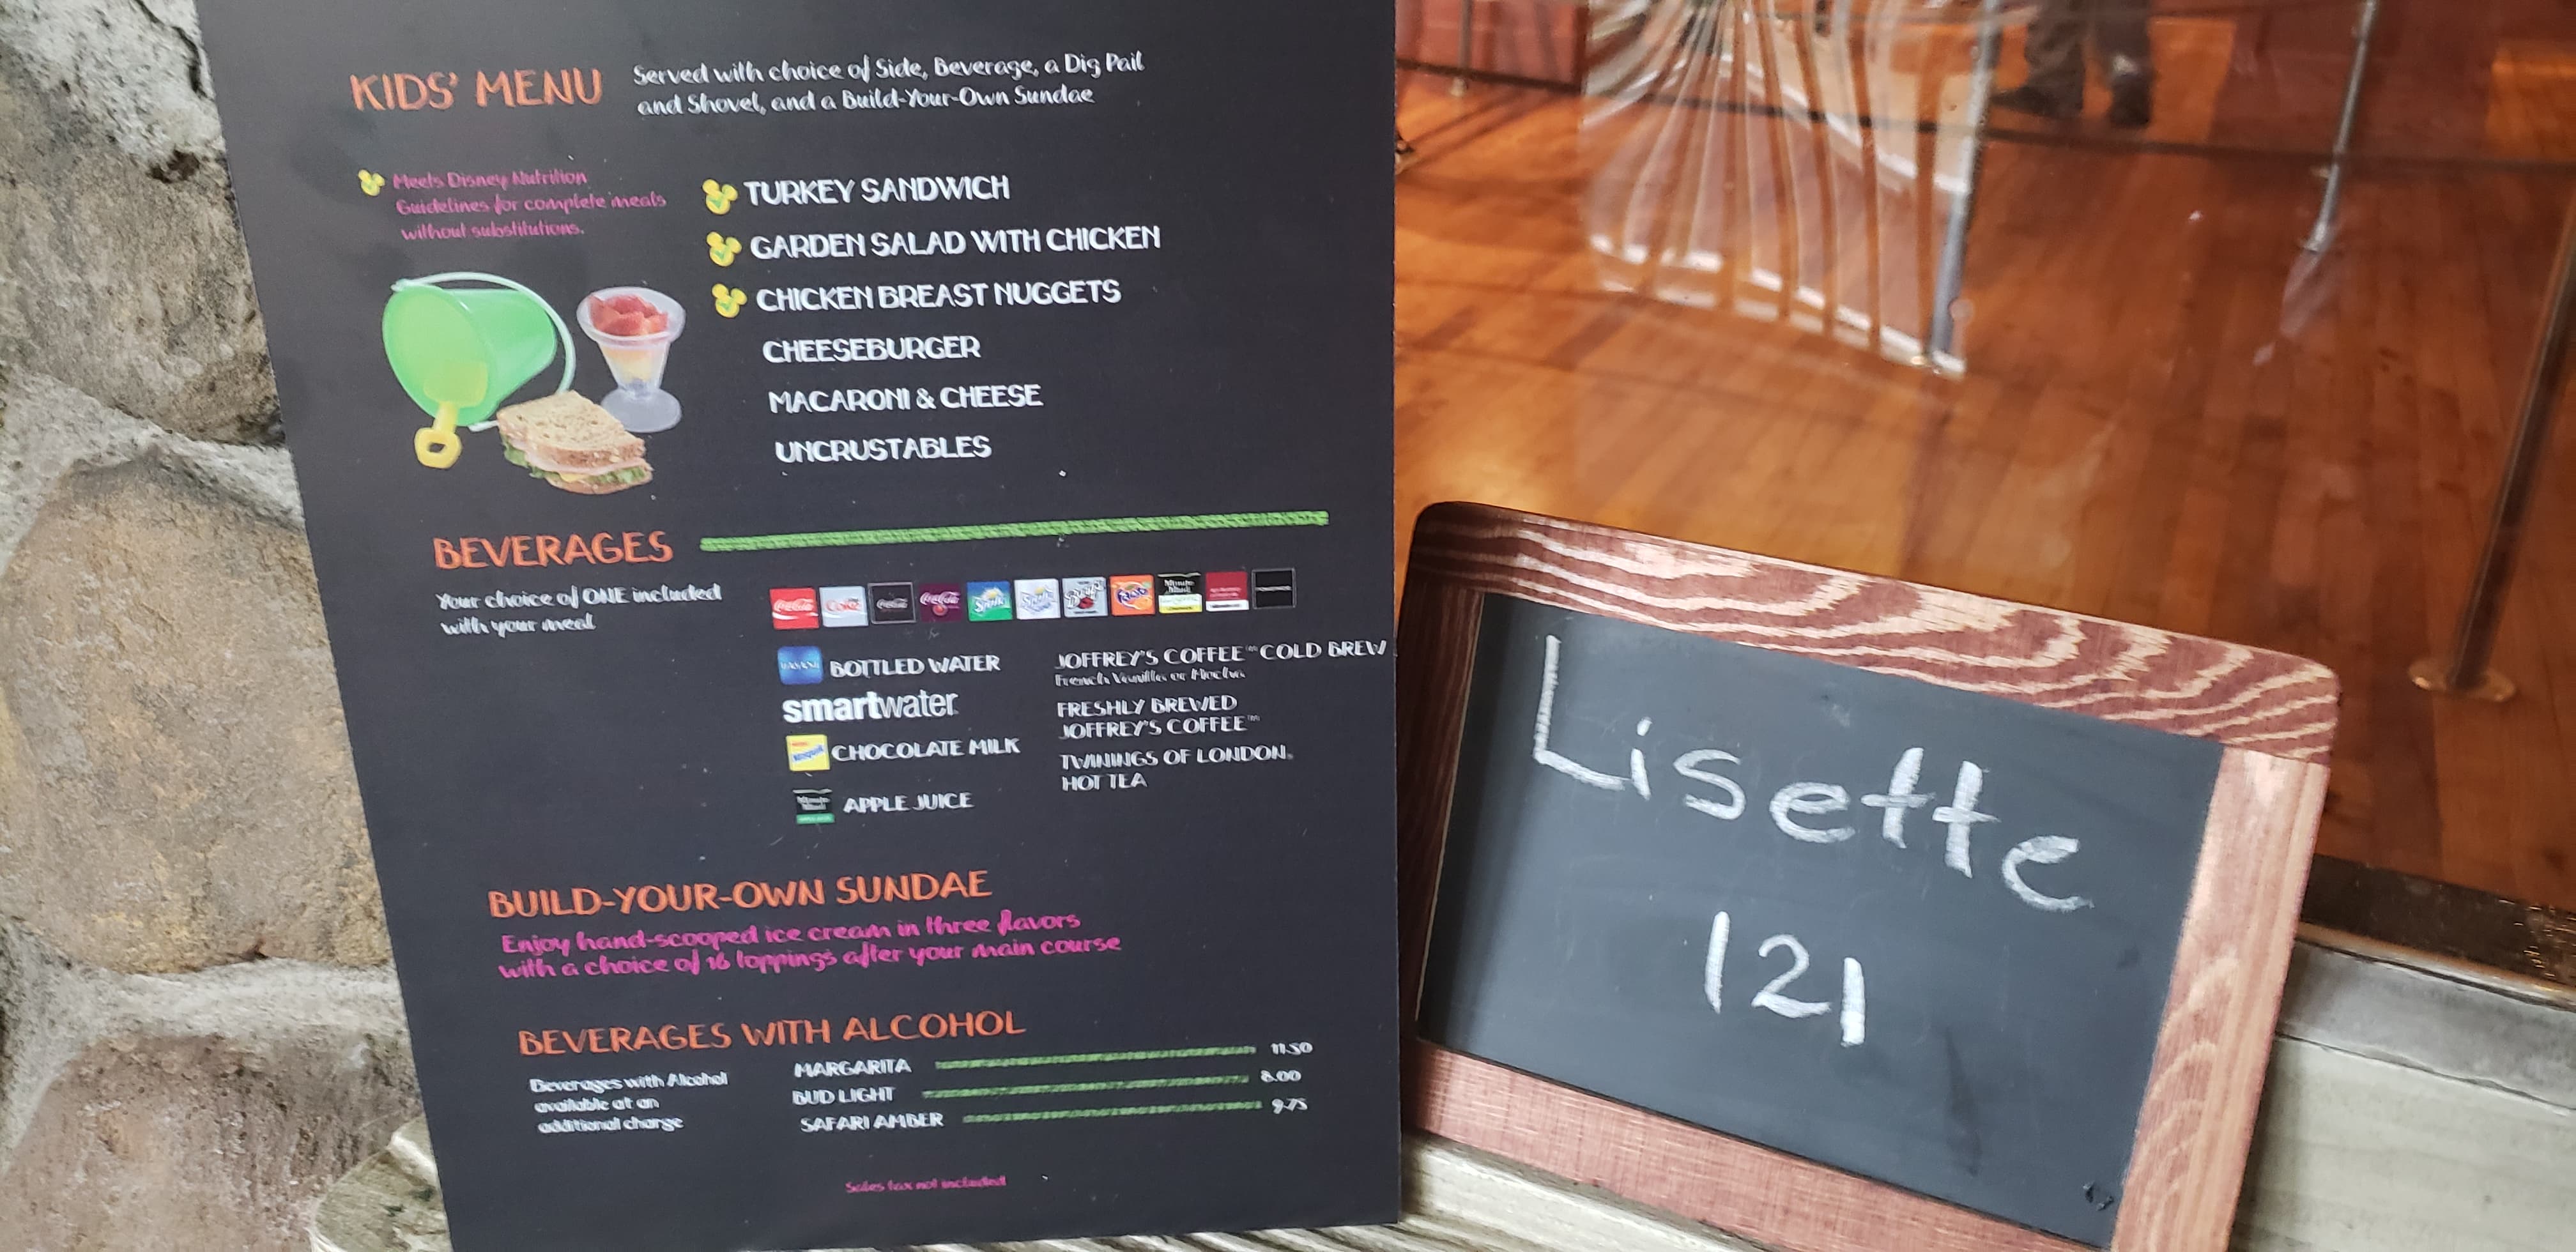 KIDS' MENU
Served with choice of Side, Beverage, a Dig Pail
and Shovel, and a Build-Your-Own Sundae
Meets Disney Nutrition
Guidelines for complete meals
without substitutions.
TURKEY SANDWICH
GARDEN SALAD WITH CHICKEN
CHICKEN BREAST NUGGETS
CHEESEBURGER
MACARONI & CHEESE
UNCRUSTABLES
BEVERAGES
Your choice of ONE included
with your meal
Coca-Cola
Coke
Coca-Cola
Coca-Cola
Sprite
Sprite
Barq's
Fanta
Minute Maid
DASANI
BOTTLED WATER
smartwater
Nesquik
CHOCOLATE MILK
Minute Maid
APPLE JUICE
JOFFREY'S COFFEE™ COLD BREW
French Vanilla or Mocha
FRESHLY BREWED
JOFFREY'S COFFEE™
TWININGS OF LONDON®
HOT TEA
BUILD-YOUR-OWN SUNDAE
Enjoy hand-scooped ice cream in three flavors
with a choice of 16 toppings after your main course
BEVERAGES WITH ALCOHOL
Beverages with Alcohol
available at an
additional charge
MARGARITA 11.50
BUD LIGHT 8.00
SAFARI AMBER 9.75
Sales tax not included
Lisette
121